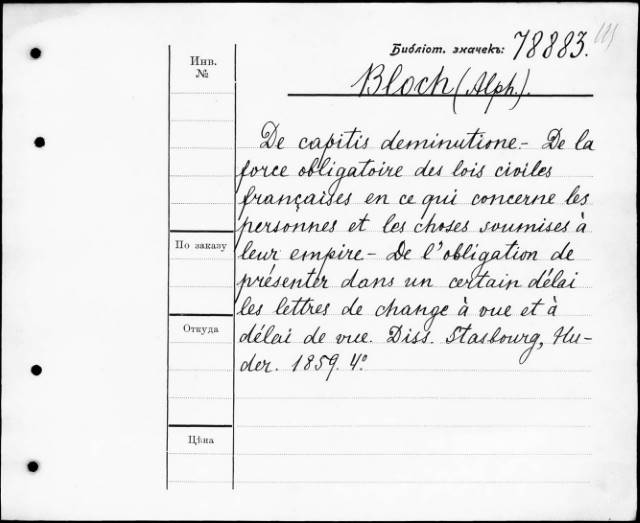 Библіот. значекъ: 78883.
Инв.
№
Bloch (Alph.).
De capitis deminutione.- De la
force obligatoire des lois civiles
françaises en ce qui concerne les
personnes et les choses soumises à
По заказу
leur empire- De l'obligation de
présenter dans un certain délai
les lettres de change à vue et à
Откуда
délai de vue. Diss. Stasbourg, Hu-
der. 1859. 4º.
Цѣна